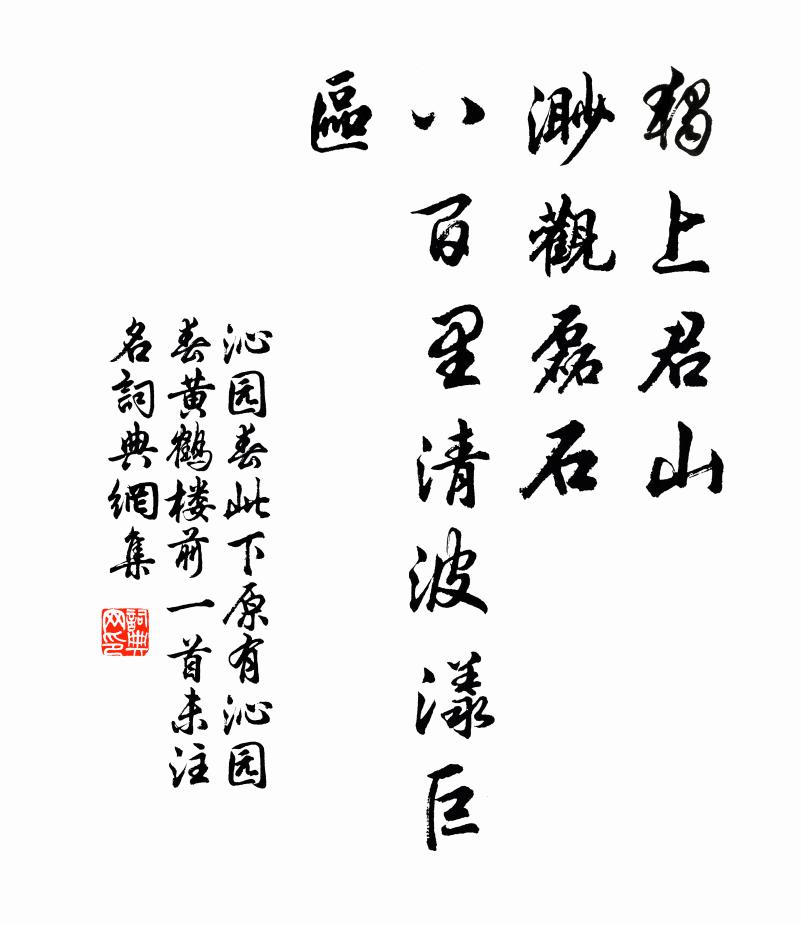 獨上君山
渺觀磊石
八百里清波漾巨
區
沁园春此下原有沁园
春黄鶴楼前一首未注
名詞典網集
詞典
网印